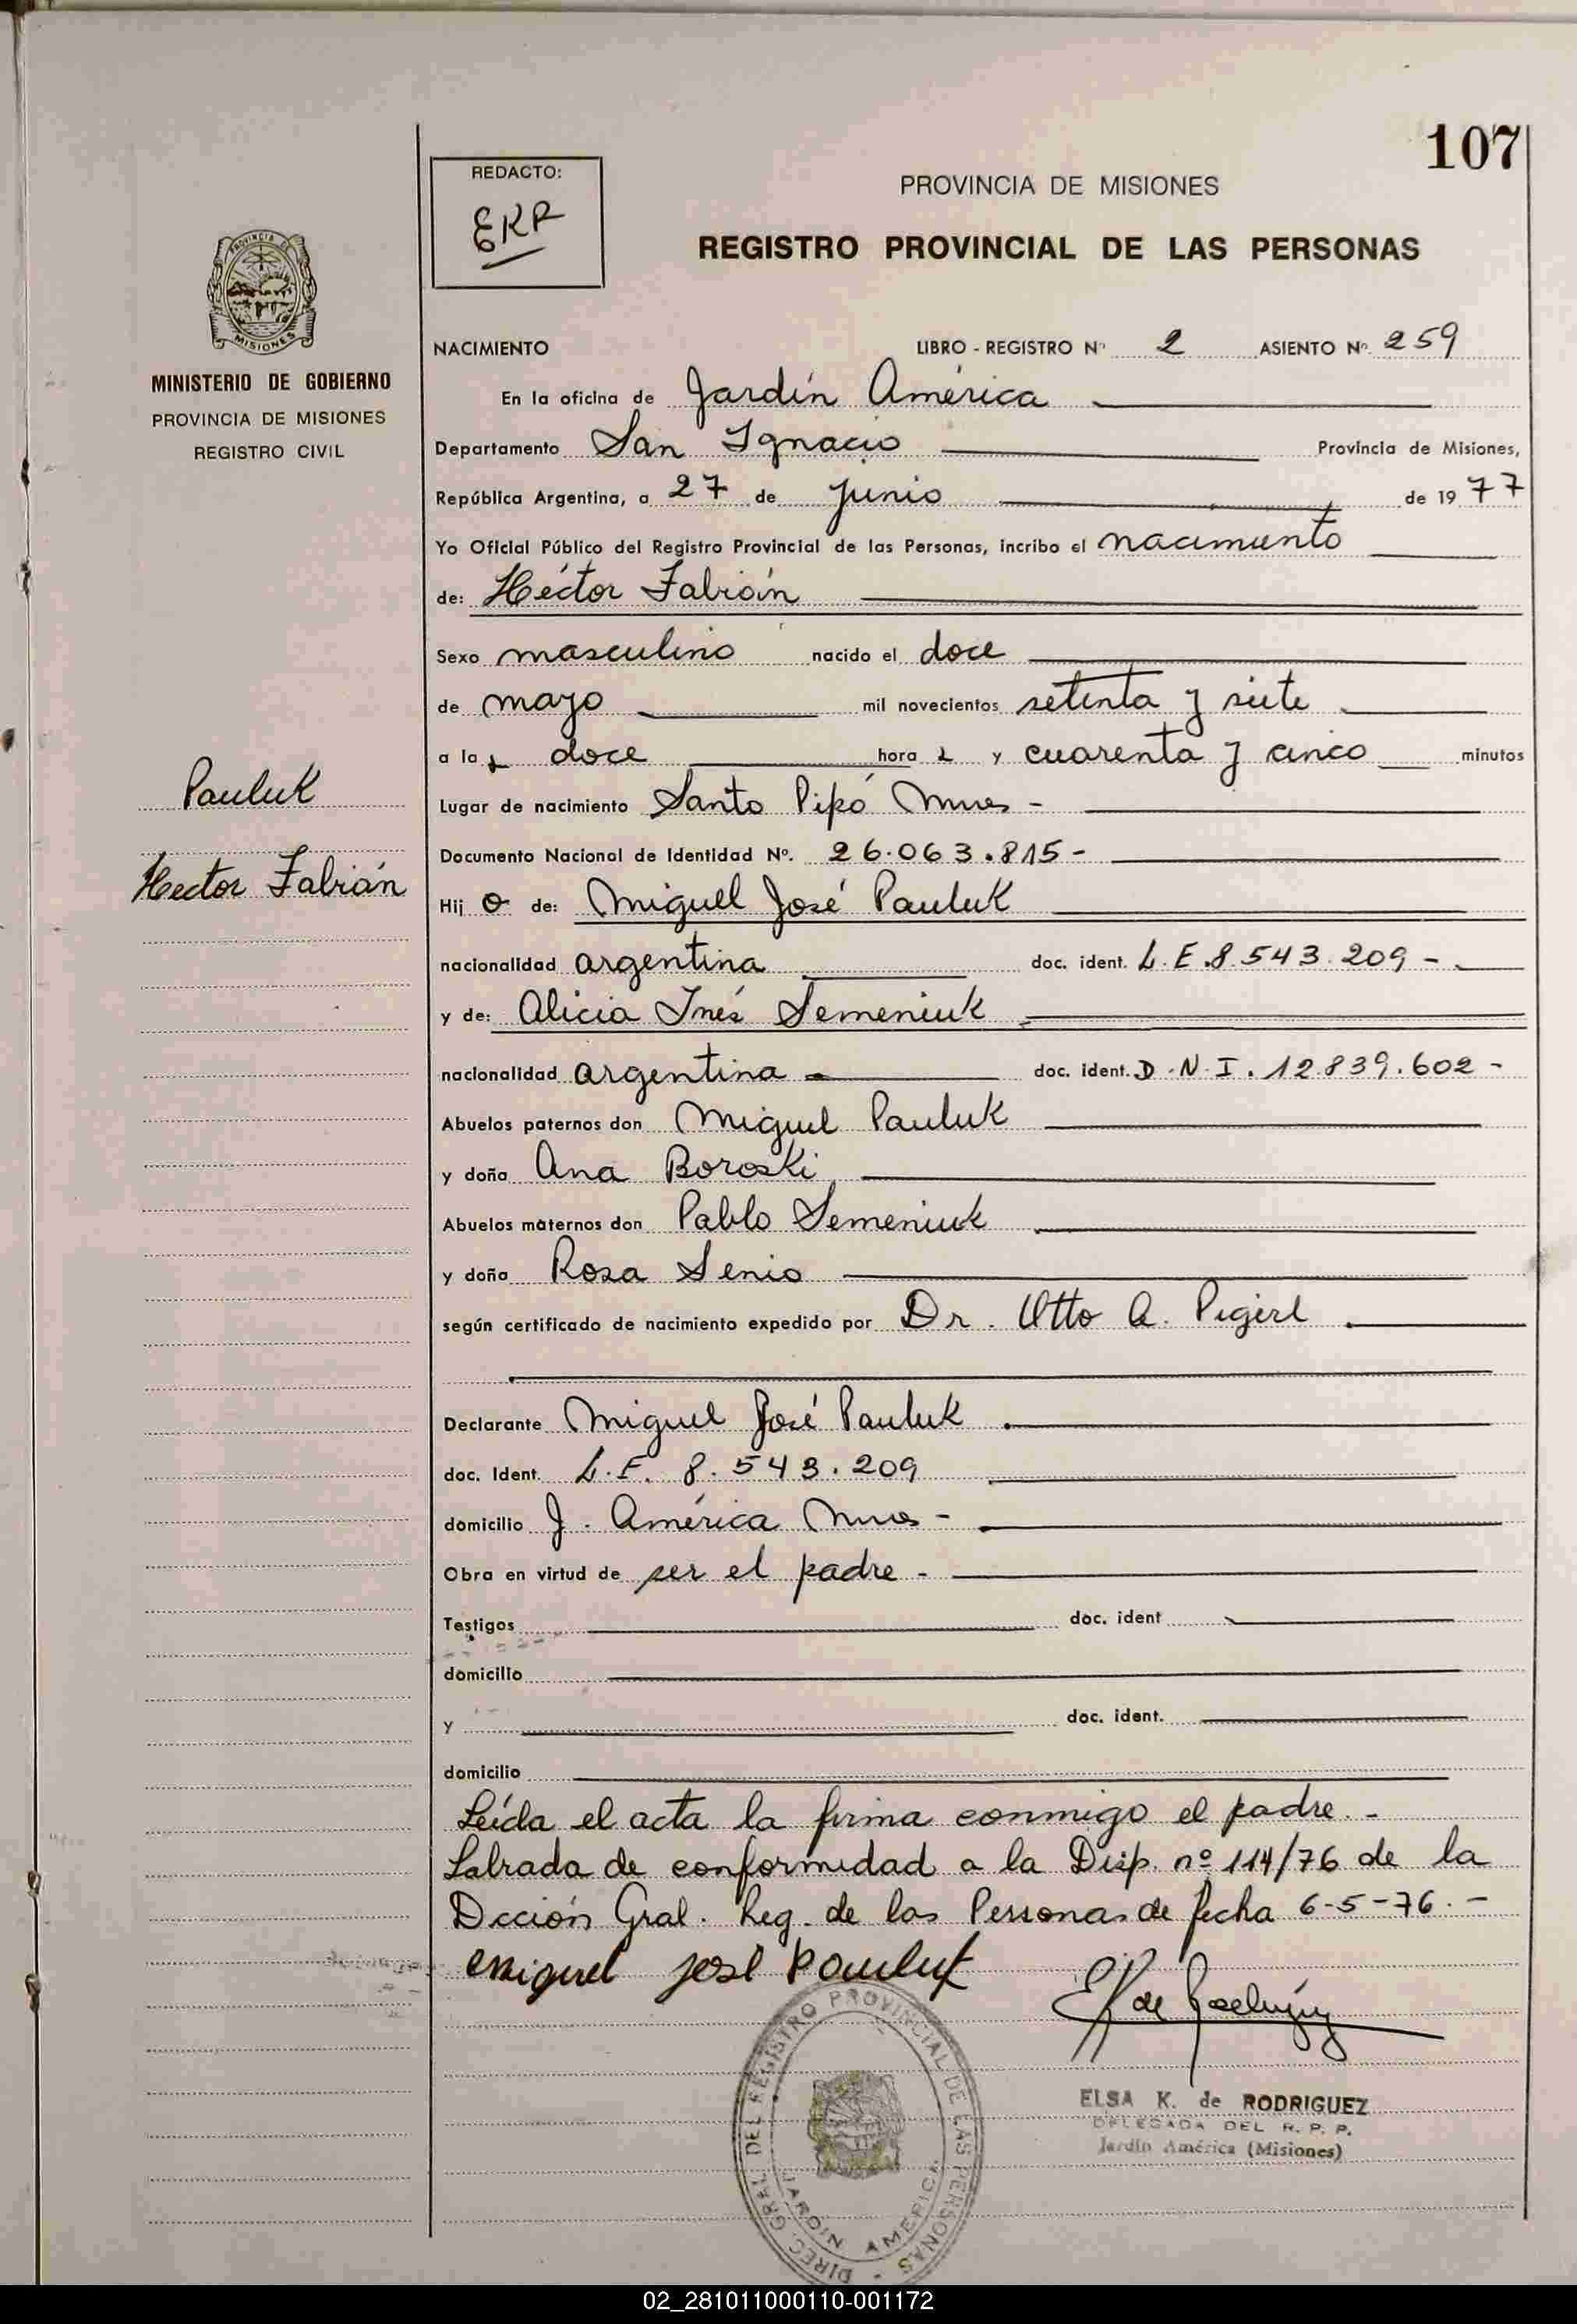 107
REDACTO:
EKR
PROVINCIA DE MISIONES
REGISTRO PROVINCIAL DE LAS PERSONAS
PROVINCIA DE
MISIONES
MINISTERIO DE GOBIERNO
PROVINCIA DE MISIONES
REGISTRO CIVIL
NACIMIENTO LIBRO - REGISTRO Nº 2 ASIENTO Nº 259
En la oficina de Jardín América
Departamento San Ignacio Provincia de Misiones,
República Argentina, a 27 de junio de 1977
Yo Oficial Público del Registro Provincial de las Personas, incribo el nacimiento
de: Héctor Fabián
Sexo masculino nacido el doce
de mayo mil novecientos setenta y siete
a las doce hora s y cuarenta y cinco minutos
Pauluk
Lugar de nacimiento Santo Pipó Mnes -
Documento Nacional de Identidad Nº. 26.063.815-
Hector Fabián
Hijo de: Miguel José Pauluk
nacionalidad argentina doc. ident. L.E.8.543.209-
y de: Alicia Inés Semeniuk
nacionalidad argentina doc. ident. D.N.I. 12.839.602-
Abuelos paternos don Miguel Pauluk
y doña Ana Boroski
Abuelos maternos don Pablo Semeniuk
y doña Rosa Senio
según certificado de nacimiento expedido por Dr. Otto A. Pigerl
Declarante Miguel José Pauluk
doc. Ident. L.E. 8.543.209
domicilio J. América Mnes -
Obra en virtud de ser el padre -
Testigos doc. ident
domicilio
y doc. ident.
domicilio
Leída el acta la firma conmigo el padre. -
Labrada de conformidad a la Disp. nº 114/76 de la
Dcción Gral. Reg. de las Personas de fecha 6-5-76. -
Miguel José Pauluk
EK de Rodríguez
DIREC. GRAL. DEL REGISTRO PROVINCIAL DE LAS PERSONAS -
JARDIN AMERICA
ELSA K. de RODRIGUEZ
DELEGADA DEL R. P. P.
Jardín América (Misiones)
02_281011000110-001172